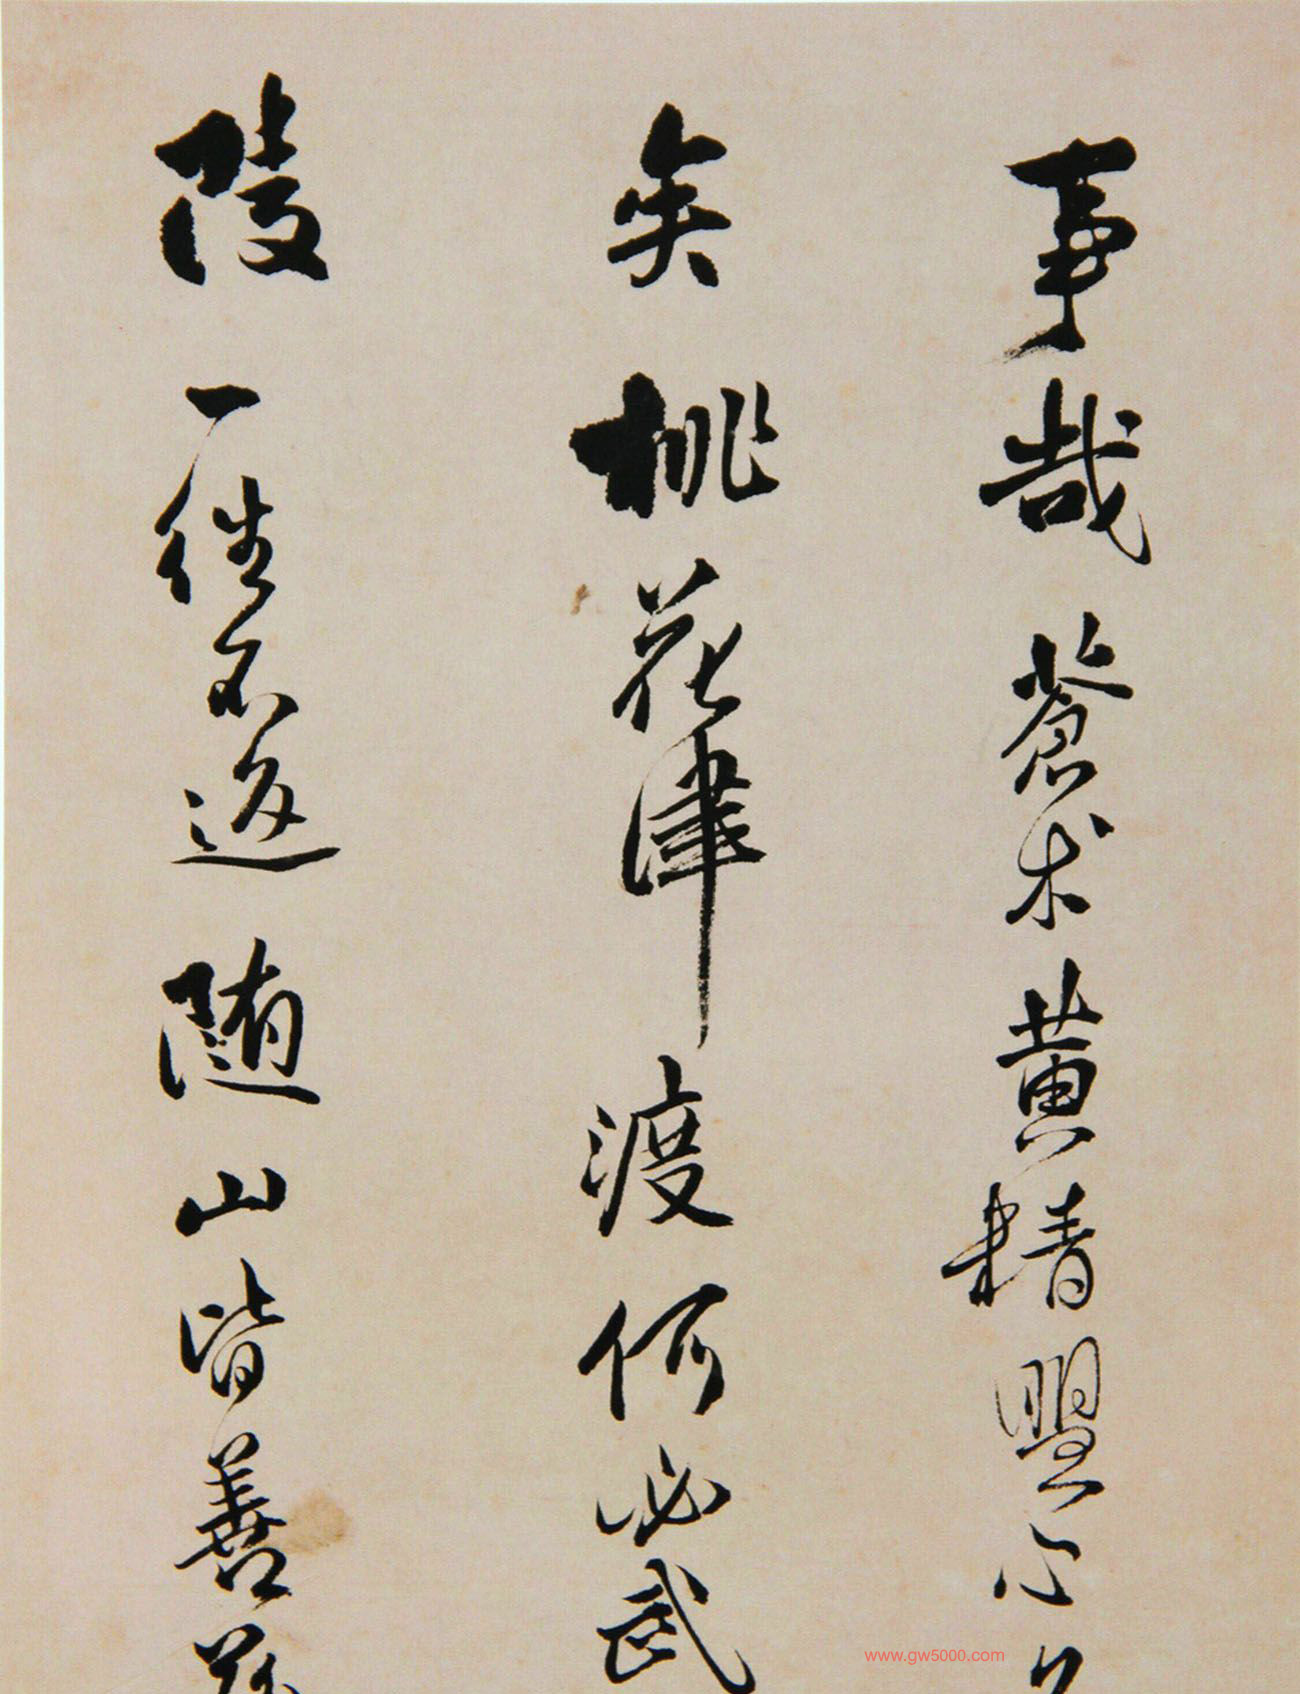 事哉蒼术黄精盟
矣桃花津渡何必武
陵一往不返随山皆善
www.gw5000.com